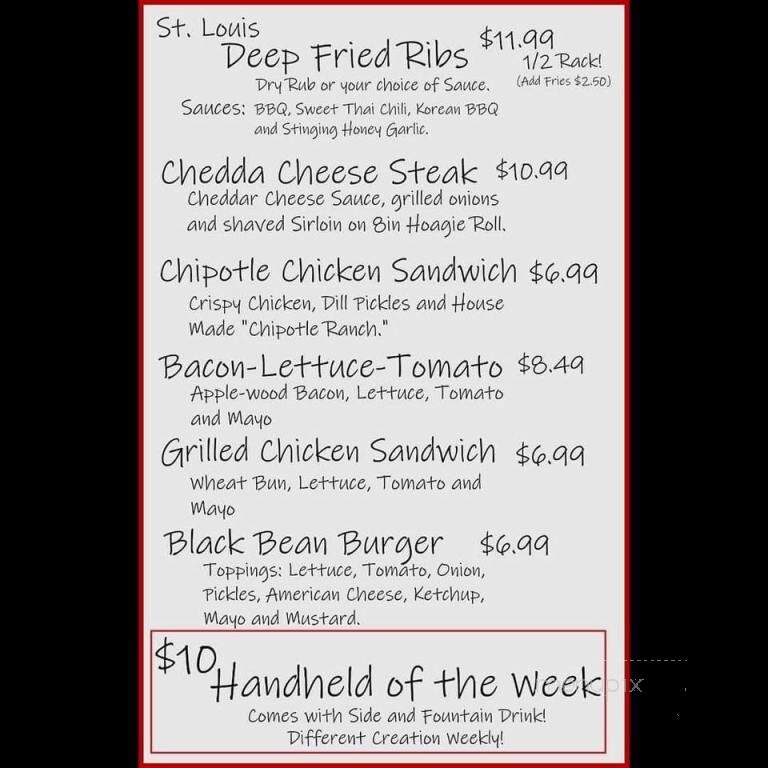 St. Louis
Deep Fried Ribs $11.99
1/2 Rack!
Dry Rub or your choice of Sauce. (Add Fries $2.50)
Sauces: BBQ, Sweet Thai Chili, Korean BBQ
and Stinging Honey Garlic.
Chedda Cheese Steak $10.99
Cheddar Cheese Sauce, grilled onions
and shaved Sirloin on 8in Hoagie Roll.
Chipotle Chicken Sandwich $6.99
Crispy Chicken, Dill Pickles and House
Made "Chipotle Ranch."
Bacon-Lettuce-Tomato $8.49
Apple-wood Bacon, Lettuce, Tomato
and Mayo
Grilled Chicken Sandwich $6.99
Wheat Bun, Lettuce, Tomato and
Mayo
Black Bean Burger $6.99
Toppings: Lettuce, Tomato, Onion,
Pickles, American Cheese, Ketchup,
Mayo and Mustard.
$10
Handheld of the Week
Comes with Side and Fountain Drink!
Different Creation Weekly!